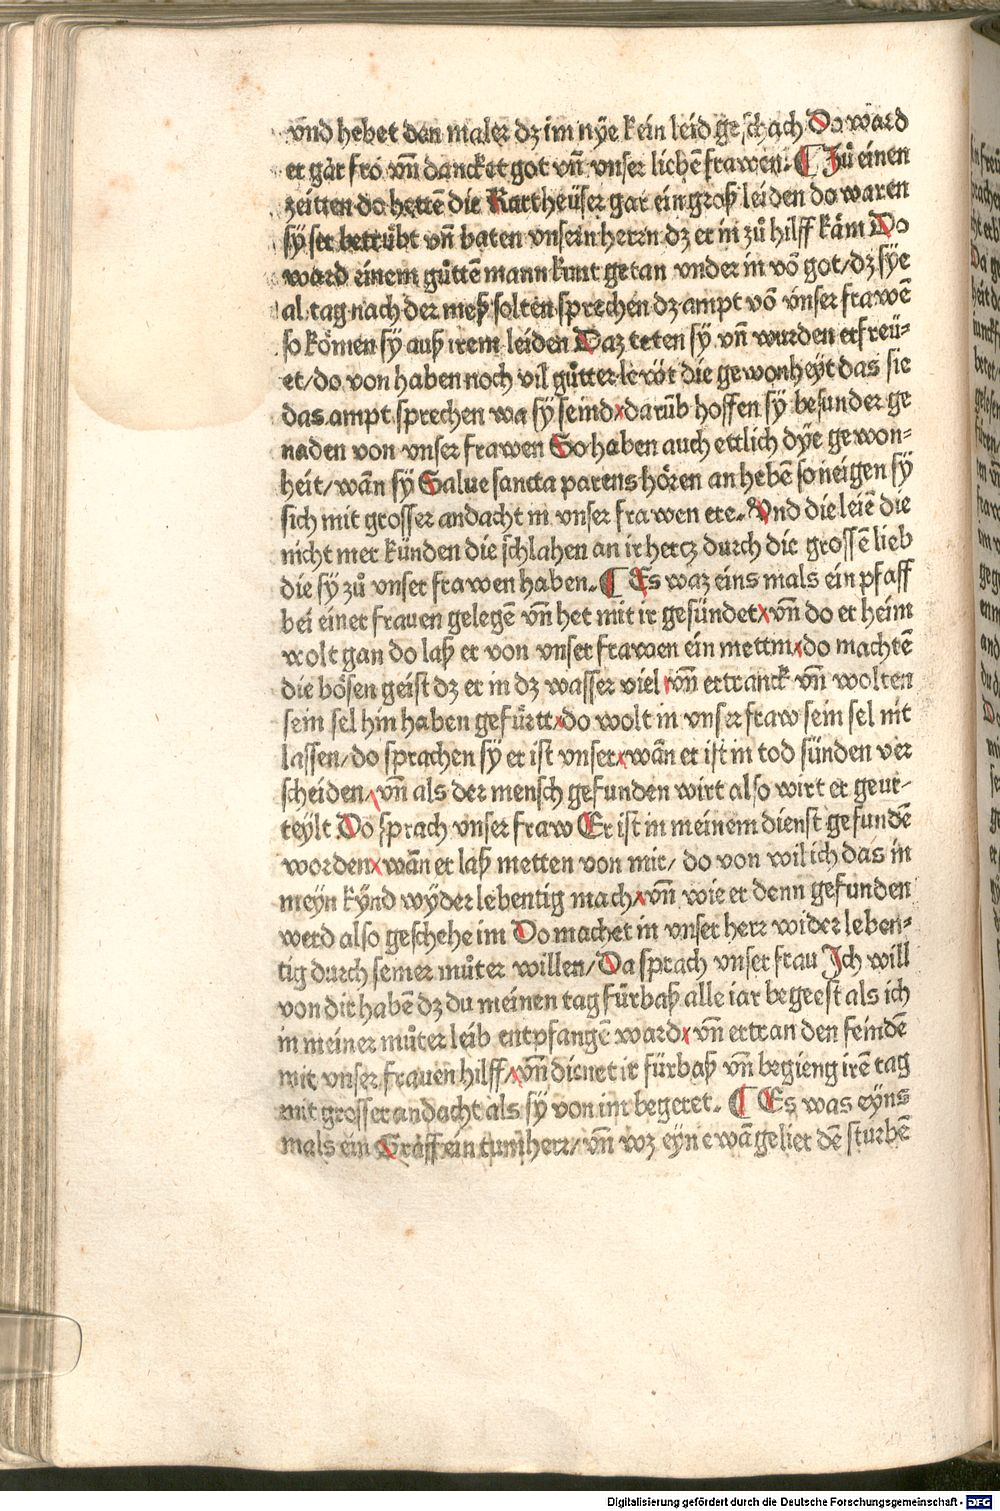 vnd hebet den maler dz im nye kein leid geschach Do ward
er gar fro vñ dancket got vñ vnser liebē frawen. ¶ Zů einen
zeitten do hettē die Kartheüser gar ein groß leiden do waren
sy ser betrübt vñ baten vnsern herrn dz er in zů hilff käm Do
ward einem gůttem mann kunt getan vnder in vō got/dz sye
al tag nach der meß solten sprechen dz ampt vō vnser frawē
so kömen sy auß irem leiden Daz teten sy vñ wurden erfreü⸗
et/do von haben noch vil gůtter leröt die gewonheyt das sie
das ampt sprechen wa sy seind darüb hoffen sy besunder ge
naden von vnser frawen So haben auch ettlich dye gewon⸗
heit/wān sy Salue sancta parens hören an hebē so neigen sy
sich mit grosser andacht in vnser frawen ere. Vnd die leiē die
nicht mer kunden die schlahen an ir hertz durch die grossē lieb
die sy zů vnser frawen haben. ¶ Es waz eins mals ein pfaff
bei einer frauen gelegē vñ het mit ir gesündet vñ do er heim
wolt gan do laß er von vnser frawen ein mettin do machtē
die bösen geist dz er in dz wasser viel vñ ertranck vñ wolten
sein sel hin haben gefürtt do wolt in vnser fraw sein sel nit
lassen/do sprachen sy er ist vnser wān er ist in tod sünden ver
scheiden/vñ als der mensch gefunden wirt also wirt er geur⸗
teylt Do sprach vnser fraw Er ist in meinem dienst gefundē
worden wān er laß metten von mir/ do von wil ich das in
meyn kynd wyder lebentig mach vñ wie er denn gefunden
werd also geschehe im Do machet in vnser herr wider leben⸗
tig durch seiner můter willen/Da sprach vnser frau Ich will
von dir habē dz du meinen tag fürbaß alle iar begeest als ich
in meiner můter leib entpfangē ward vñ ertran den feindē
mit vnser frauen hilff/vñ dienet ir fürbaß vñ begieng irē tag
mit grosser andacht als sy von im begeret. ¶ Es was eyns
mals ein Graff ein tumherr/vñ wz eyn ewāgelier dē sturbē
Digitalisierung gefördert durch die Deutsche Forschungsgemeinschaft - DFG